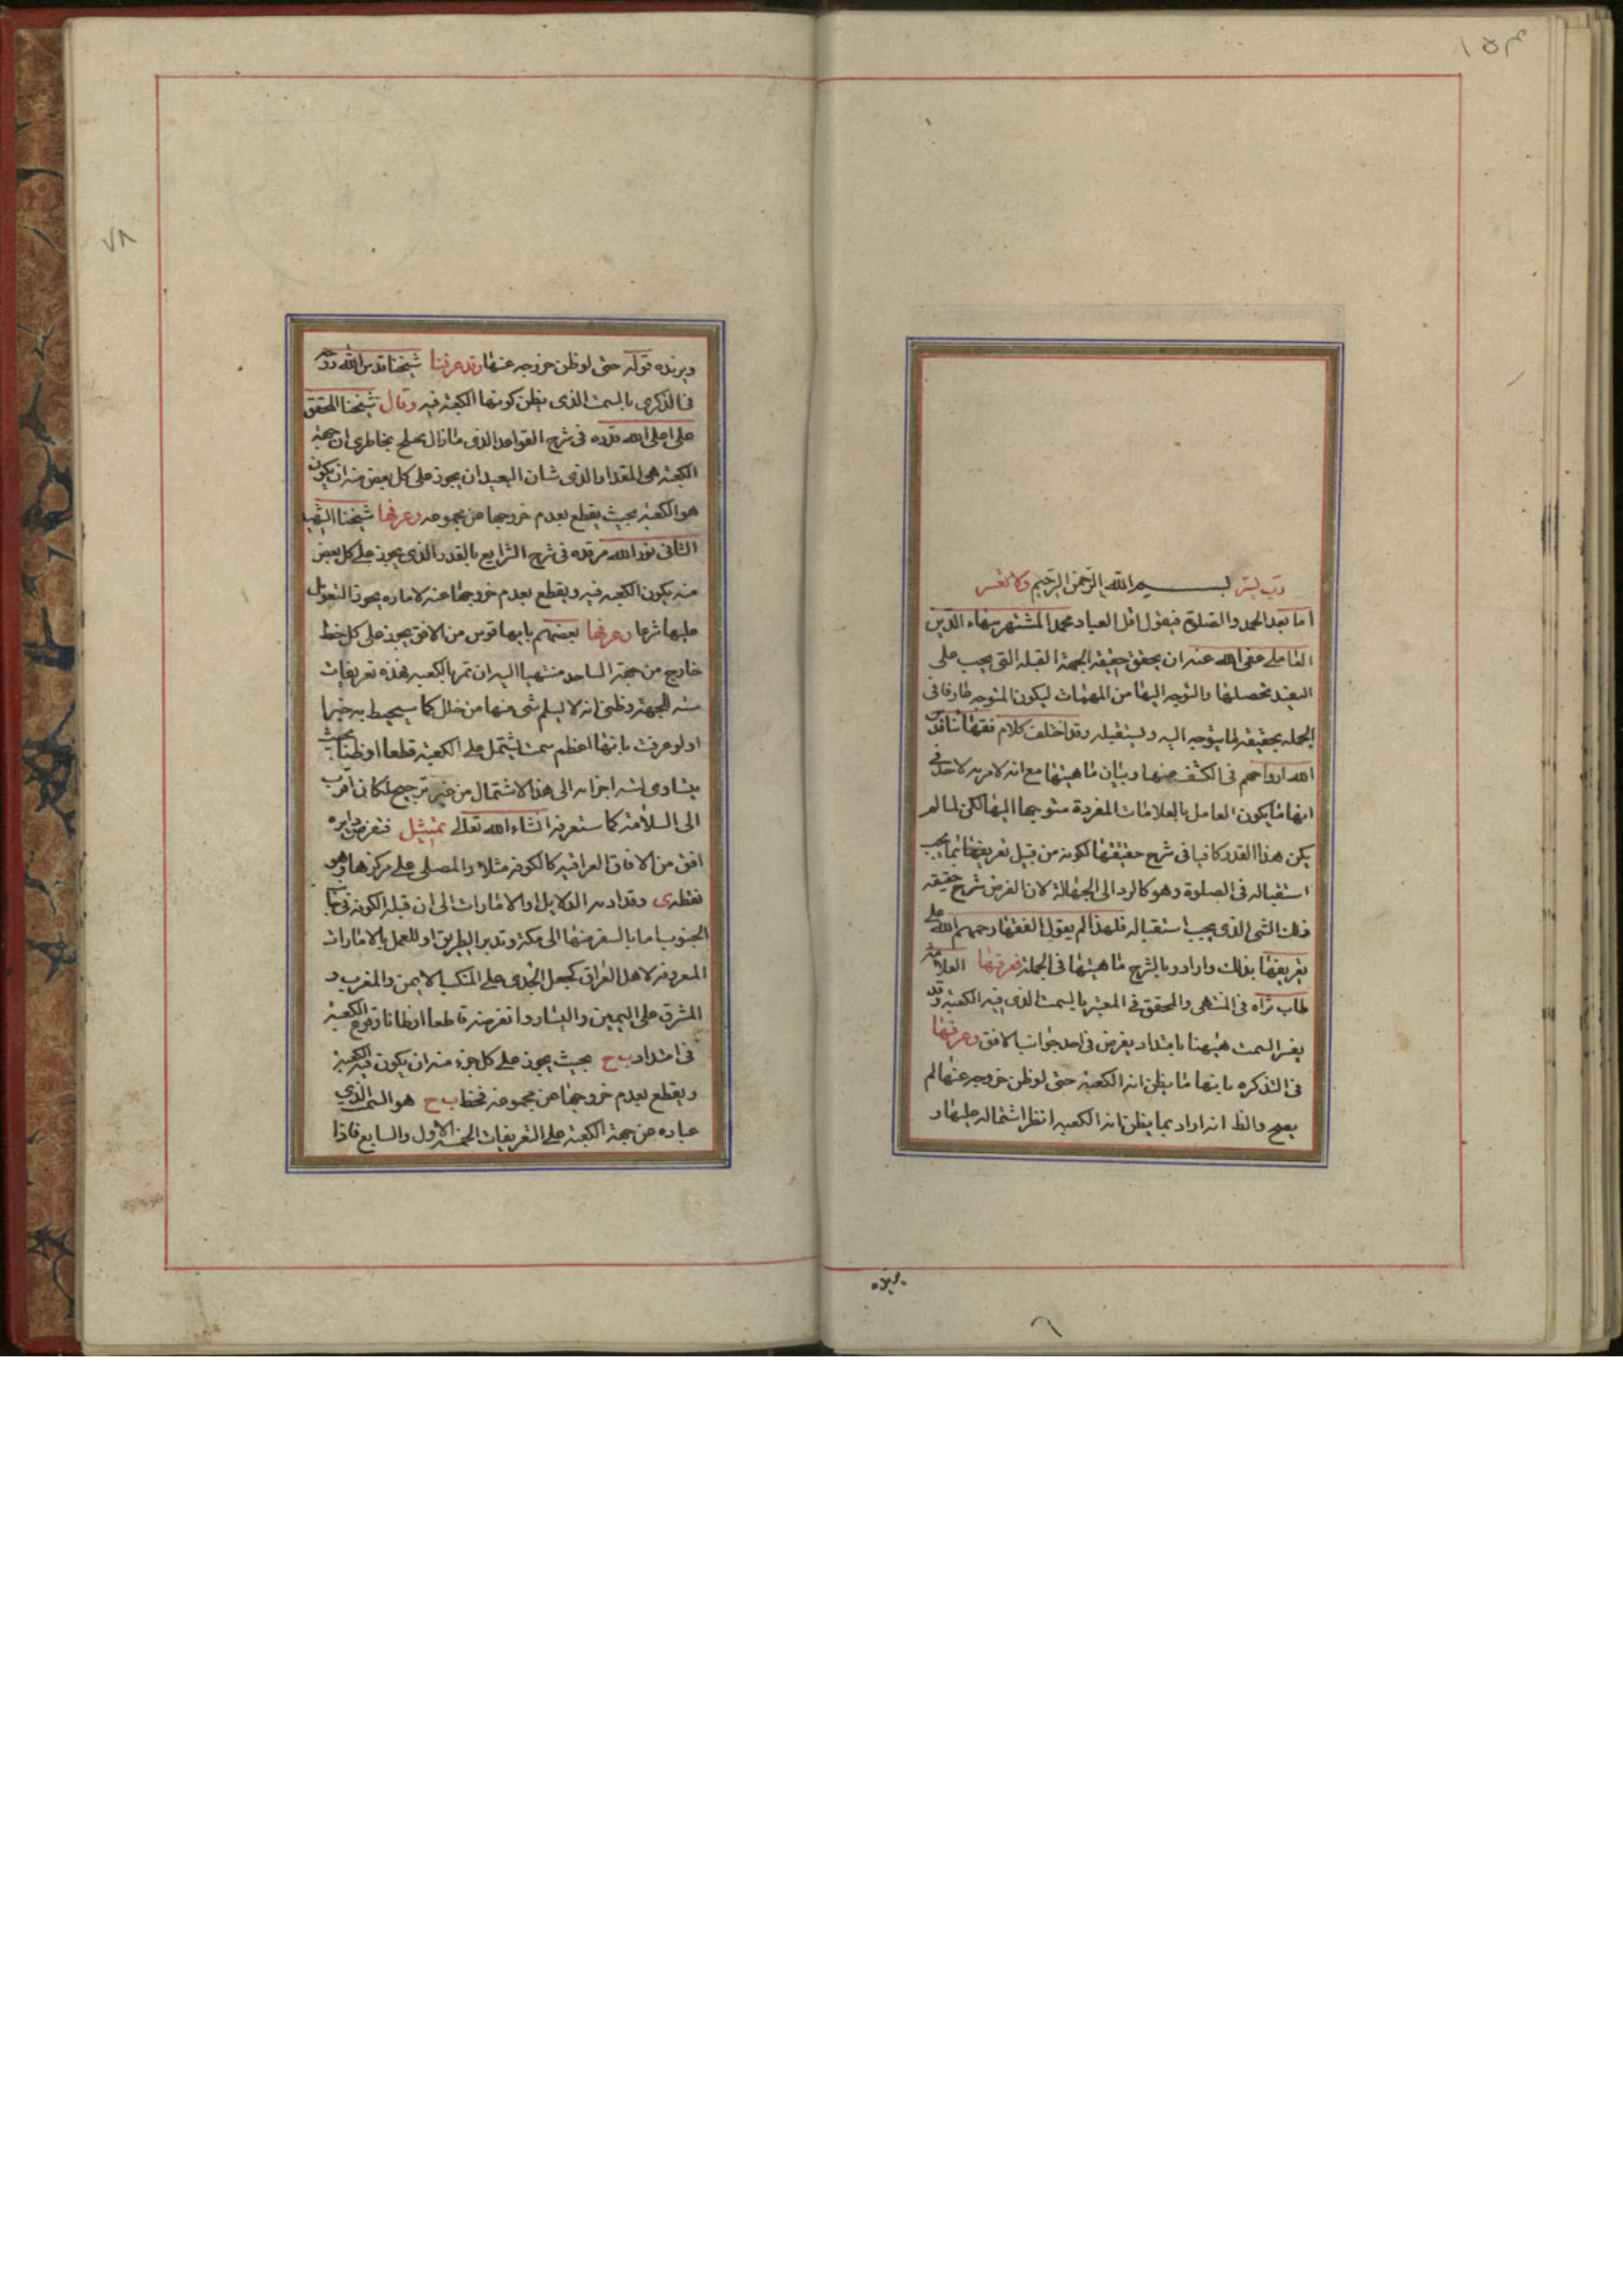 ١٥٣
رب يسر بسم الله الرحمن الرحيم ولا تعسر
اما بعد الحمد والصلوة فيقول اقل العباد محمد المشتهر ببهاء الدين
العاملي عفى الله عنه ان تحقيق حقيقة الجهة القبلة التي يجب على
البعيد تحصيلها والتوجه اليها من المهمات ليكون المتوجه عارفا في
الجمله بحقيقة ما يتوجه اليه ويستقبله وقد اختلف كلام فقهائنا قدس
الله ارواحهم في الكشف عنها وبيان ماهيتها مع انه لا مرية لاحد في
انها ما يكون العامل بالعلامات المفردة متوجها اليها لكن لما لم
يكن هذا القدر كافيا في شرح حقيقتها لكونه من قبيل تعريفها بما يجب
استقباله في الصلوة وهو كالرد الى الجهالة لان الغرض شرح حقيقة
ذلك الشي الذي يجب استقباله فلهذا لم يعول الفقهاء رحمهم الله على
تعريفها بذلك وارادوا شرح ماهيتها في الجملة فعرفها العلامة
طاب ثراه في المنتهى والمحقق في المعتبر بالسمت الذي فيه الكعبة وقد
يفسر السمت هيهنا بامتداد يفرض في احد جوانب الافق وعرفها
في التذكره بانها ما يظن انه الكعبة حتى لو ظن خروجه عنها لم
يصح والظ انه اراد بما يظن انه الكعبه انظر اشتماله عليها و
يريده
٧٨
ويريده قوله حتى لو ظن خروجه عنها وقد عرفنا شيخنا قدس الله روحه
في الذكرى بالسمت الذي يظن كونها الكعبة فيه وقال شيخنا المحقق
علي اعلى الله قدره في شرح القواعد الذي ما زال يختلج بخاطري ان جهة
الكعبة هي المقدار الذي شان البعيد ان يجوز على كل بعض منه ان يكون
هو الكعبة بحيث يقطع بعدم خروجها عن مجموعه وعرفها شيخنا الشهيد
الثاني نور الله مرقده في شرح الشرايع بالقدر الذي يجوز على كل بعض
منه يكون الكعبه فيه ويقطع بعدم خروجها عنه لاماره يجوز التعويل
عليها شرعا وعرفها بعضهم بانها قوس من الافق يجوز على كل خط
خارج من جهة الساجد منتهيا اليه ان تمر بالكعبه فهذه تعريفات
سته للجهة وظني انه لا يسلم شي منها من خلل كما سيحيط به خبرا
او لو عرفت بانها اعظم سمت يشتمل على الكعبة قطعا او ظنا بحيث
يتساوى نسبة اجزائه الى هذا الاشتمال من غير ترجيح لكان اقرب
الى السلامة كما ستعرفه انشاء الله تعالى تمثيل فنفرض دايرة
افق من الافاق العراقيه كالكوفه مثلا والمصلي على مركزها وهو
نقطه ى وقد ادته الدلايل او الامارات الى ان قبلة الكوفه في جهة
الجنوب اما بالسفر منها الى مكة وتدبر الطريق او للعمل بالامارات
المعروفة لاهل العراق كجعل الجدي على المنكب الايمن والمغرب و
المشرق على اليمين واليسار ونفرضه قاطعا او ظانا وقوع الكعبة
في امتداد ب ح بحيث يجوز على كل جزء منه ان يكون فيه الكعبة
ويقطع بعدم خروجها عن مجموعه فخط ب ح هو السمت الذي
عباره عن جهة الكعبة على التعريفات الخمسة الاول والسابع فاذا